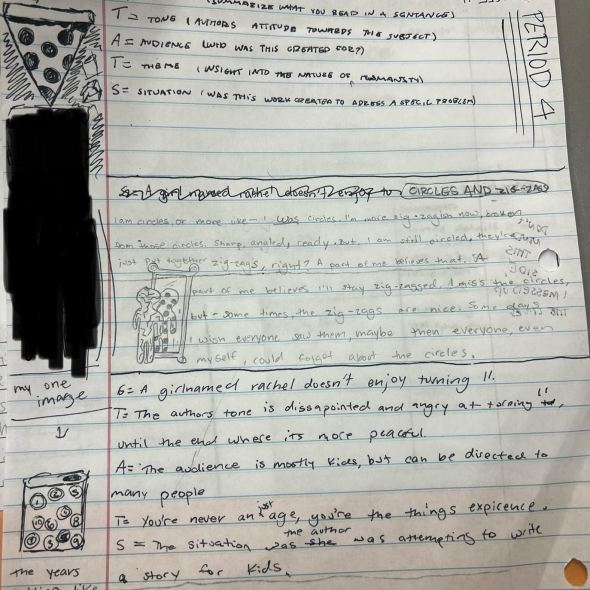 (SUMMARIZE WHAT YOU READ IN A SENTANCE)
T= TONE (AUTHORS ATTITUDE TOWARDS THE SUBJECT)
A= AUDIENCE (WHO WAS THIS CREATED FOR?)
T= THEME (INSIGHT INTO THE NATURE OF HUMANITY)
S= SITUATION (WAS THIS WORK CREATED TO ADRESS A SPECIFIC PROBLEM)
PERIOD 4
A girl named rachel doesn't enjoy to CIRCLES AND ZIG-ZAGS
I am circles, or more like - I was circles. I'm more zig-zagish now, broken
from those circles. Sharp, angled, ready. But, I am still circled, they're
just put together zig-zags, right? A part of me believes that. A
part of me believes i'll stay zig-zagged. I miss the circles,
but - some times, the zig-zags are nice. Some days
I wish everyone saw them, maybe then everyone, even
myself, could forgot about the circles.
my one
image
G= A girl named rachel doesn't enjoy turning 11.
T= The authors tone is dissapointed and angry at turning 11,
until the end where its more peaceful.
A= The audience is mostly kids, but can be directed to
many people
T= You're never an just age, you're the things expirence.
S= The situation was she the author was attempting to write
a story for kids.
the years